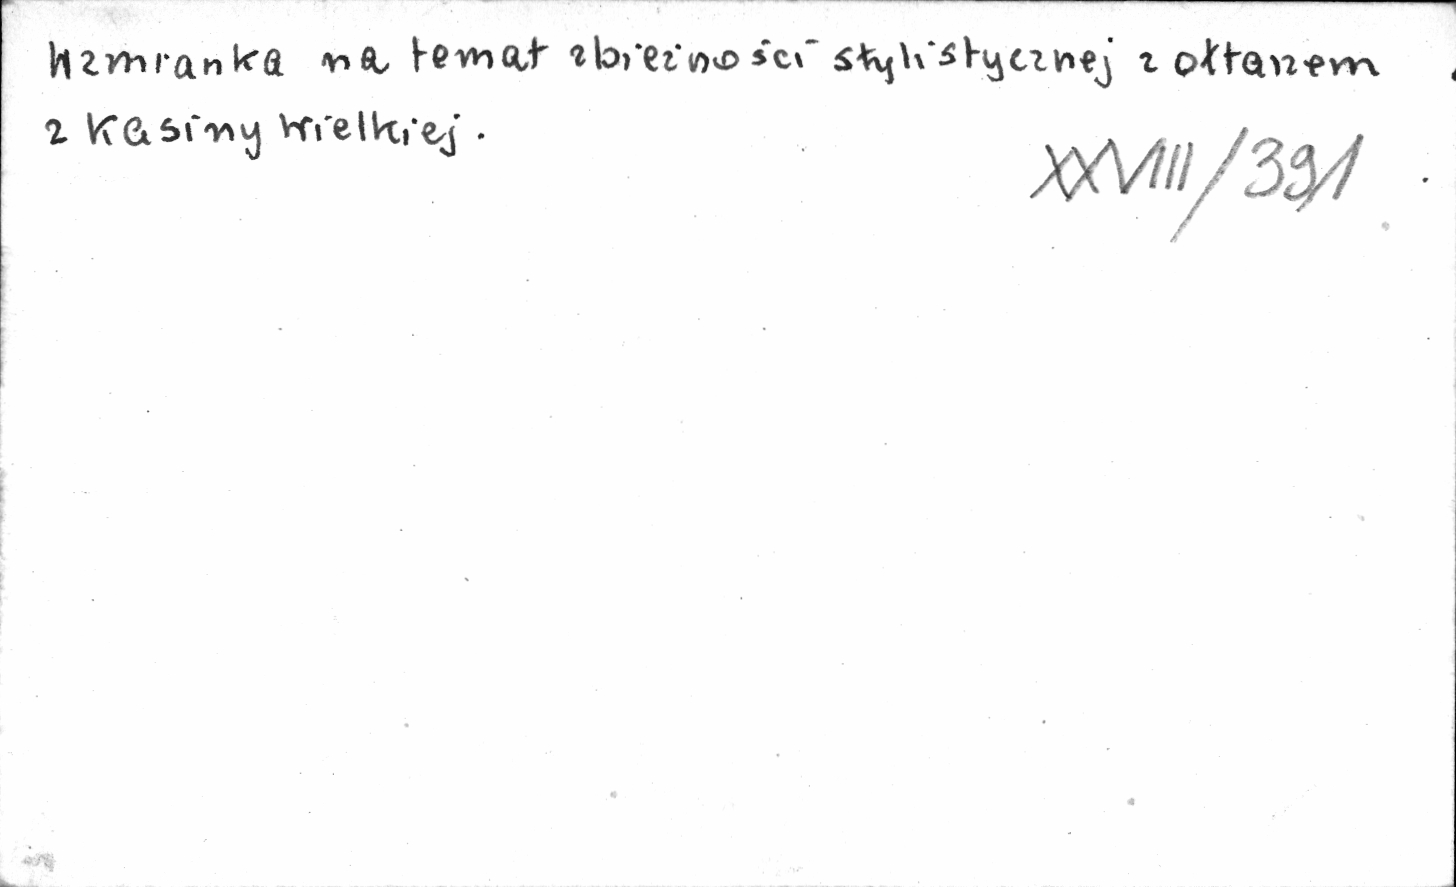 Wzmianka na temat zbieżności stylistycznej z ołtarzem
z Kasiny Wielkiej.
XXVIII/391